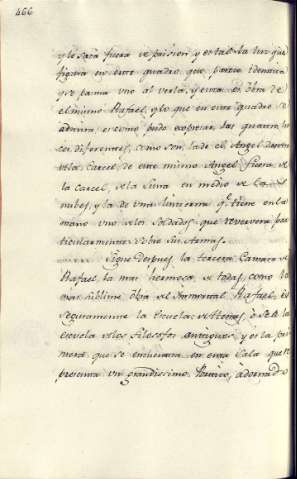 466
y le saca fuera de prision, y esta la luz que
figura en este quadro que parece
uno al verla, y esta es obra de
el mismo Rafael, y lo que en este quadro se
admira es como pudo expresar las quatro lu
ces diferentes, como son, la de el Angel dentro
de la Carcel, de este mismo Angel fuera de
la Carcel, de la Luna en medio de las
nubes, y la de una linterna que tiene en la
mano uno de los soldados, que reververa par
ticularmente sobre sus Armas.
Sigue despues la tercera Camara de
Rafael, la mas hermosa de todas, como la
mas sublime obra de el immortal Rafael. Es
seguramente la Escuela de Athenas, ò sea la
escuela de los filosofos antiguos, y es la pri
mera que se encuentra en esta Sala que re
presenta un grandissimo Portico, adornado